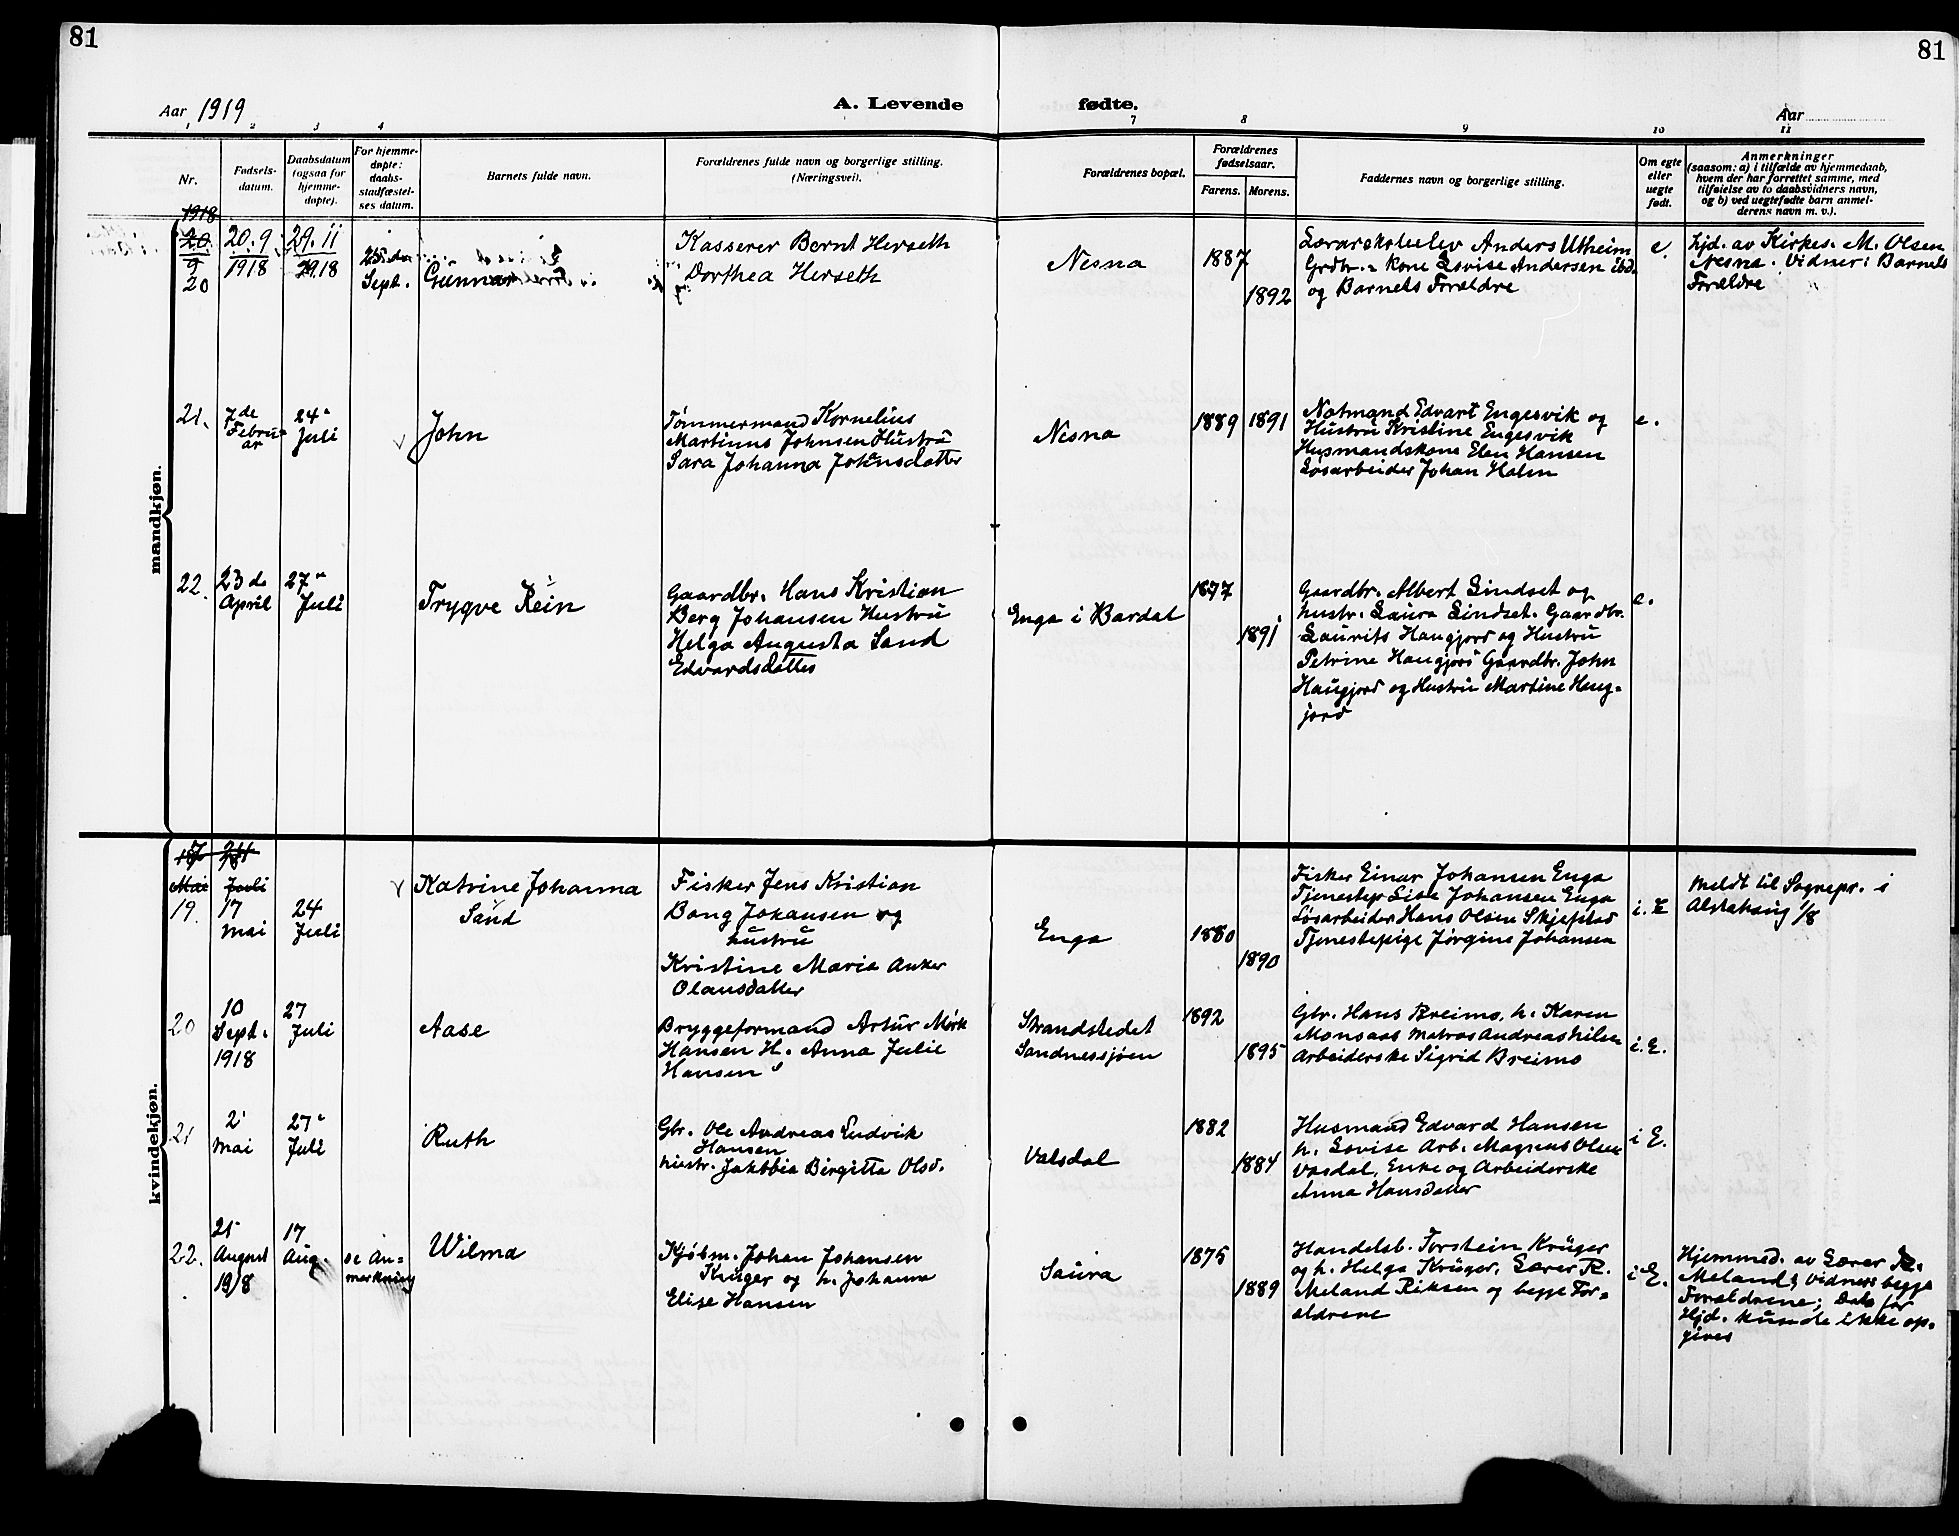 81
81
Aar 1919
A. Levende
fødte.
Aar
1
2
3
4
7
8
9
10
11
Nr.
Fødsels-
datum.
Daabsdatum
(ogsaa for
hjemme-
døpte).
For hjemme-
døpte:
daabs-
stadfæstel-
ses datum.
Barnets fulde navn.
Forældrenes fulde navn og borgerlige stilling.
(Næringsvei).
Forældrenes bopæl.
Forældrenes
fødselsaar.
Farens.
Morens.
Faddernes navn og borgerlige stilling.
Om egte
eller
uegte
født.
Anmerkninger
(saasom: a) i tilfælde av hjemmedaab,
hvem der har forrettet samme, med
tilføielse av to daabsvidners navn,
og b) ved uegtefødte barn anmel-
derens navn m. v.).
mandkjøn.
1918
20
9
20
20. 9
1918
29. 11
18
25. de
Sept.
Gunnar
Kasserer Bernt Herseth
Dorthea Herseth
Nesna
1887
1892
Lærerskoleelev Anders Utheim
Grdbr. & kone Lovise Andersen ibd.
og Barnets Forældre
e.
Hjd. av Kirkes. M. Olsen
Nesna. Vidner: Barnets
Forældre
21.
7 de
Febru-
ar
24
Juli
John
Tømmermand Kornelius
Martinus Johnsen Hustru
Sara Johanna Johnsdatter
Nesna
1889
1891
Notmand Edvart Engesvik og
Hustru Kristine Engesvik
Husmandskone Elen Hansen
Løsarbeider Johan Holm
e.
22.
23 de
April
27
Juli
Trygve Rein
Gaardbr. Hans Kristian
Berg Johansen Hustru
Helga Augusta Sand
Edvardsdatter
Enga i Bardal
1877
1891
Gaardbr. Albert Lindset og
hustr. Laura Lindset. Gaardbr.
Laurits Haugjord og Hustru
Petrine Haugjord Gaardbr. John
Haugjord og Hustru Martine Haug-
jord
e.
kvindekjøn.
Mai
Juli
19.
17
Mai
24
Juli
Katrine Johanna
Sand
Fisker Jens Kristian
Bang Johansen og
hustru
Kristine Marie Anker
Olausdatter
Enga
1880
1890
Fisker Einar Johansen Enga
Tjenestep. Lise Johansen Enga
Løsarbeider Hans Olsen Skjefstad
Tjenestepige Jørgine Johansen
i. E
Meldt til Sognepr. i
Alstahaug 1/8
20
10
Sept.
1918
27
Juli
Aase
Bryggeformand Artur Mørk
Hansen H. Anna Julie
Hansen
Strandstedet
Sandnessjøen
1892
1895
Gbr. Hans Breimo, h. Karen
Monsaas Matros Andreas Nilsen
Arbeiderske Sigrid Breimo
i. E.
21
2
Mai
27
Juli
Ruth
Gbr. Ole Andreas Ludvik
Hansen
hustr. Jakobbia Birgitta Olsd.
Valsdal
1882
1884
Husmand Edvard Hansen
h. Lovise Arb. Magnus Olsen
Vasdal, Enke og Arbeiderske
Anna Hansdatter
i E.
22.
25
August
1918
17
Aug.
se An-
merkning
Wilma
Kjøbm. Johan Johansen
Krüger og h. Johanna
Elise Hansen
Saura
1875
1889
Handelsb. Torstein Krüger
og h. Helga Krüger, Lærer R.
Meland Riksen og begge For-
ældrene
i E.
Hjemmed. av Lærer R.
Meland; Vidner: begge
Forældrene; Dato for
Hjd. kunde ikke op-
gives